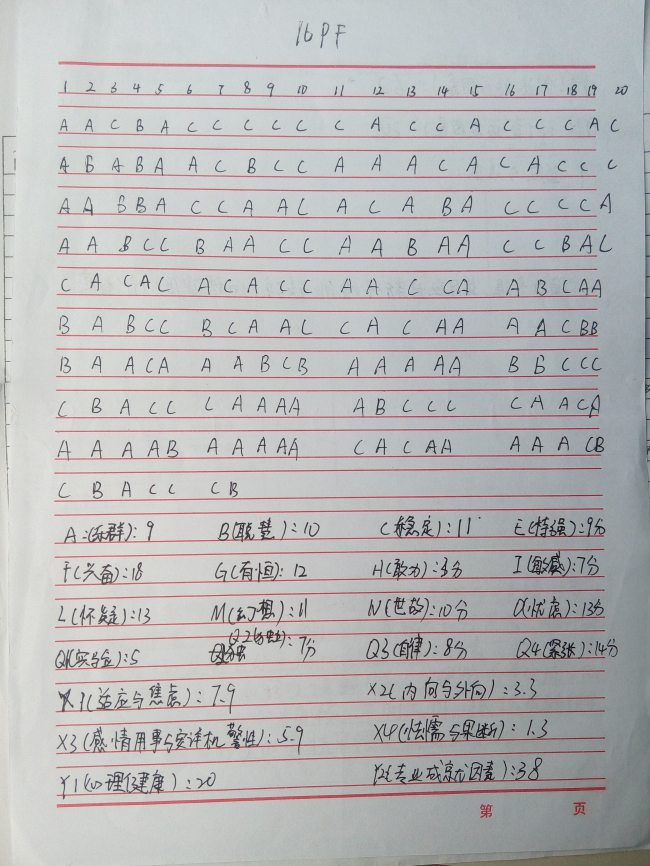 16PF
1 2 3 4 5 6 7 8 9 10 11 12 13 14 15 16 17 18 19 20
A A C B A C C C C C C A C C A C C C A C
A B A B A A C B C C A A A C A C A C C C
A A B B A C C A A C A C A B A C C C C A
A A B C C B A A C C A A B A A C C B A C
C A C A C A C A C C A A C C A A B C A A
B A B C C B C A A C C A C A A A A C B B
B A A C A A A B C B A A A A A B B C C C
C B A C C C A A A A A B C C C C A A C A
A A A A B A A A A A C A C A A A A A C B
C B A C C C B
A:(乐群):9 B(聪慧):10 C(稳定):11 E(恃强):9分
F(兴奋):18 G(有恒):12 H(敢为):3分 I(敏感):7分
L(怀疑):13 M(幻想):11 N(世故):10分 O(忧虑):13分
Q1(实验):5 Q2(独立):7分 Q3(自律):8分 Q4(紧张):14分
X1(适应与焦虑):7.9 X2(内向与外向):3.3
X3(感情用事与安详机警性):5.9 X4(怯懦与果断):1.3
Y1(心理健康):20 Y2(专业成就因素):38
第 页